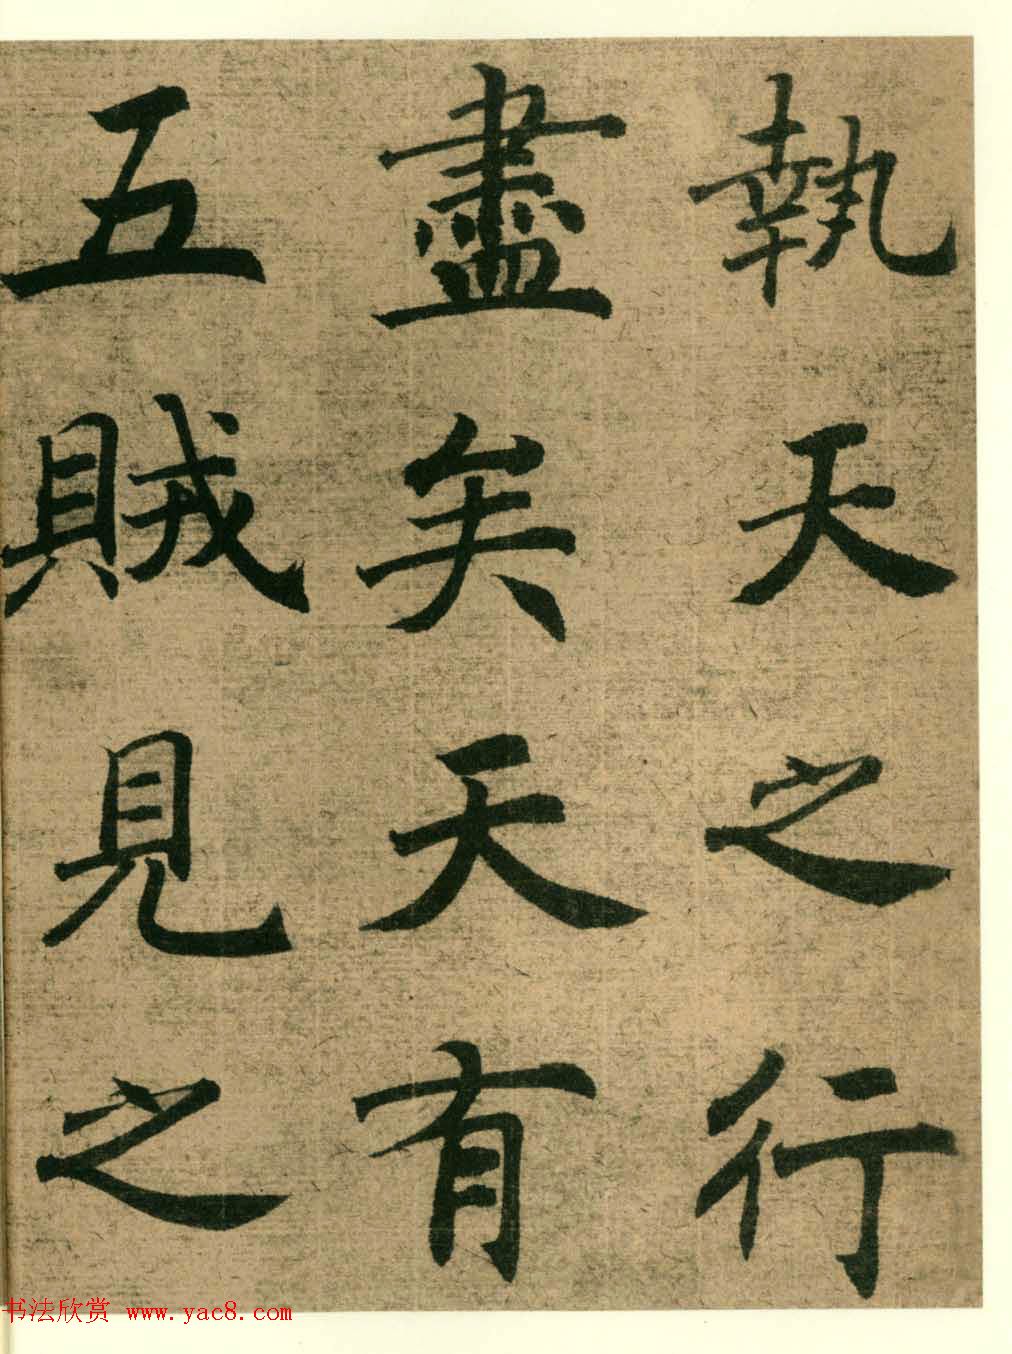 執天之行
盡矣天有
五賊見之
书法欣赏 www.yac8.com